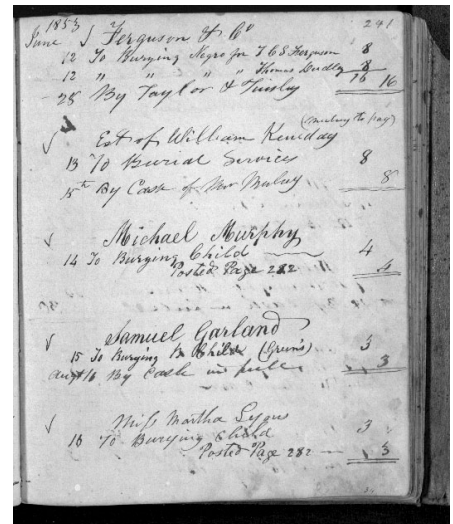 1853 241
June Ferguson & Co
12 To Burying Negro for T C S Ferguson 8
12 " " " " Thomas Dudley 8
16 16
28 By Taylor & Tinsley
Est of William Kenday
13 To Burial Services 8
15th By Cash of 8
Michael Murphy
14 To Burying Child 4
Posted Page 282 4
Samuel Garland
15 To Burying Child 3
Augt 16 By Cash in full 3
Miss Martha Lyons
16 To Burying Child 3
Posted Page 282 3